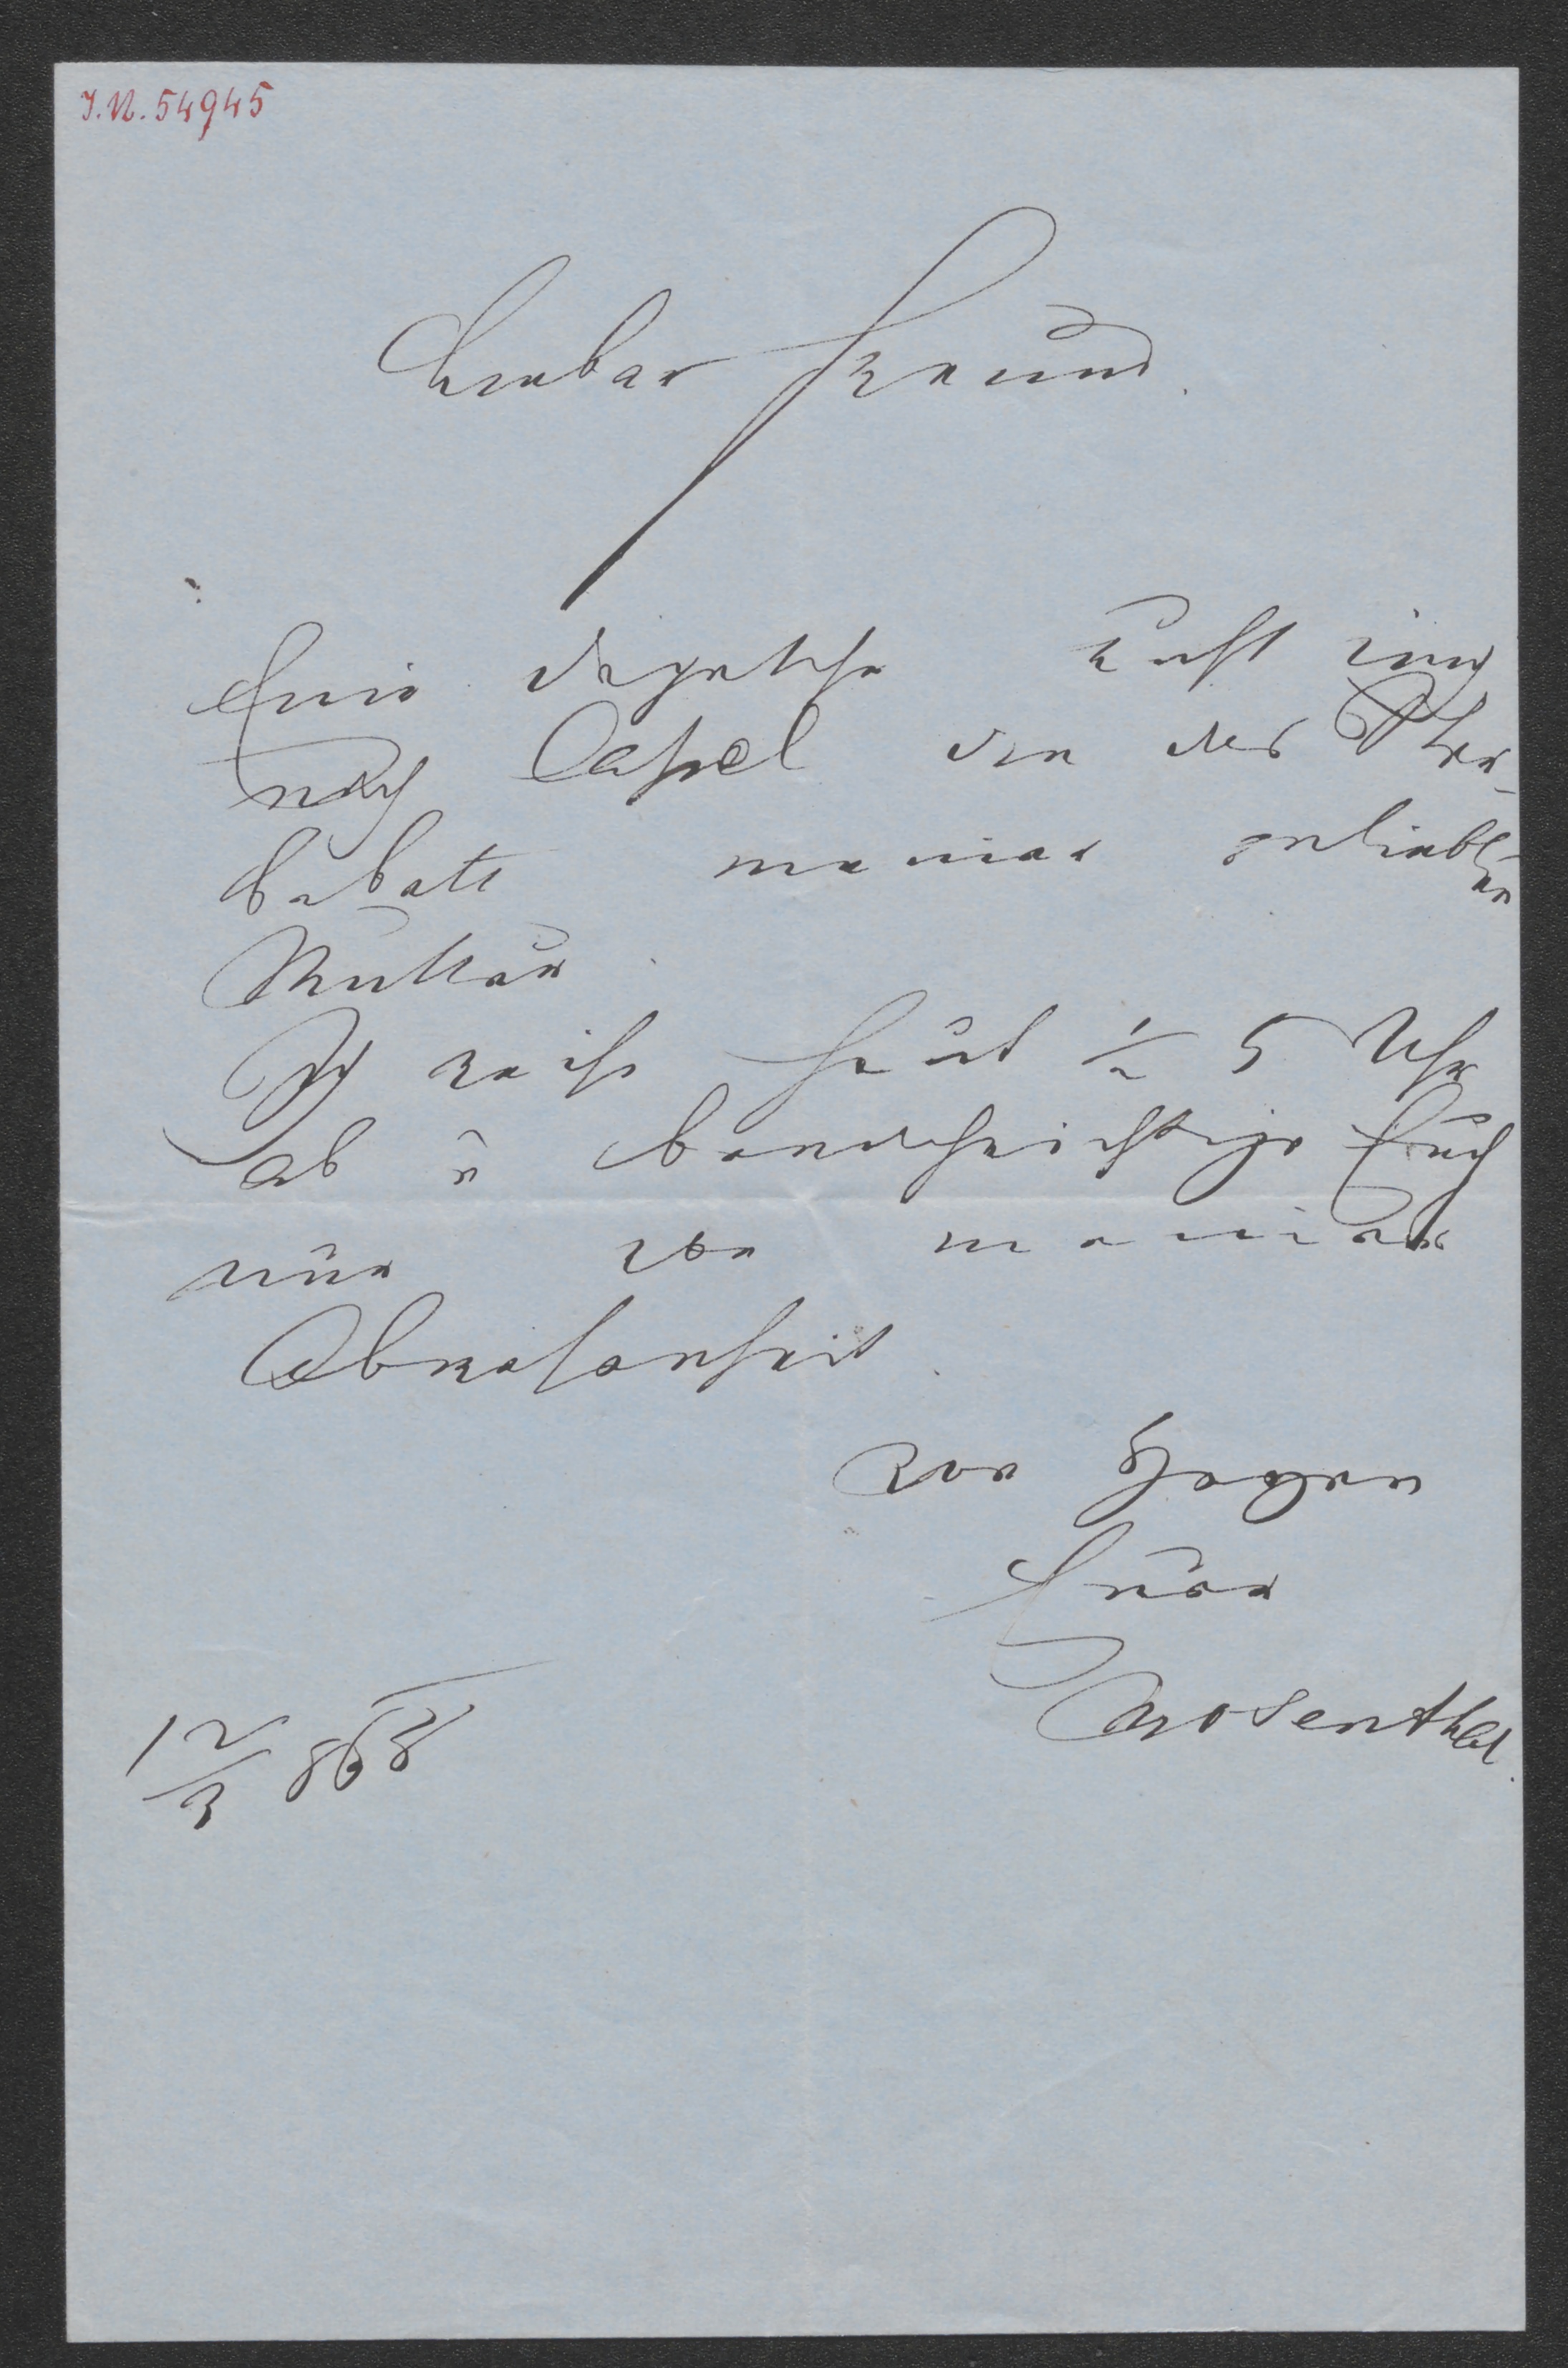 J.N. 54945
Lieber Freund.
Eine Depesche ruft mich
nach Cassel an das Ster-
bebett meiner geliebt-
en
Mutter.
Ich reise heut ½ 5 Uhr
ab u benachrichtige Euch
nur von meiner
Abwesenheit.
Von Herzen
Euer
Mosenthal.
12/3 868